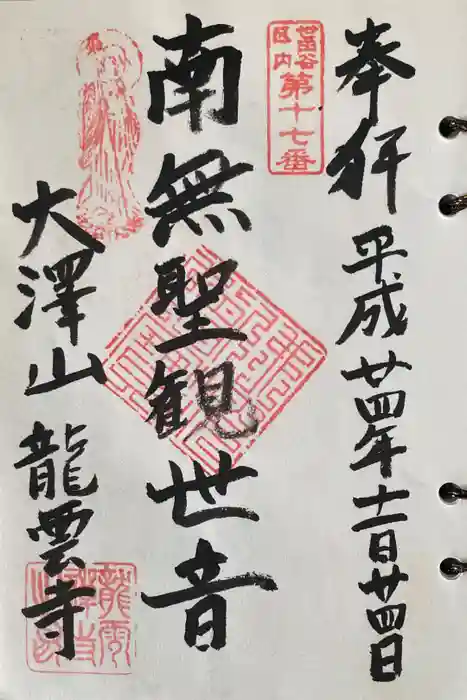 奉拝 平成廿四年十一月廿四日
世田谷
区内
第十七番
南無聖観世音
大澤山 龍雲寺